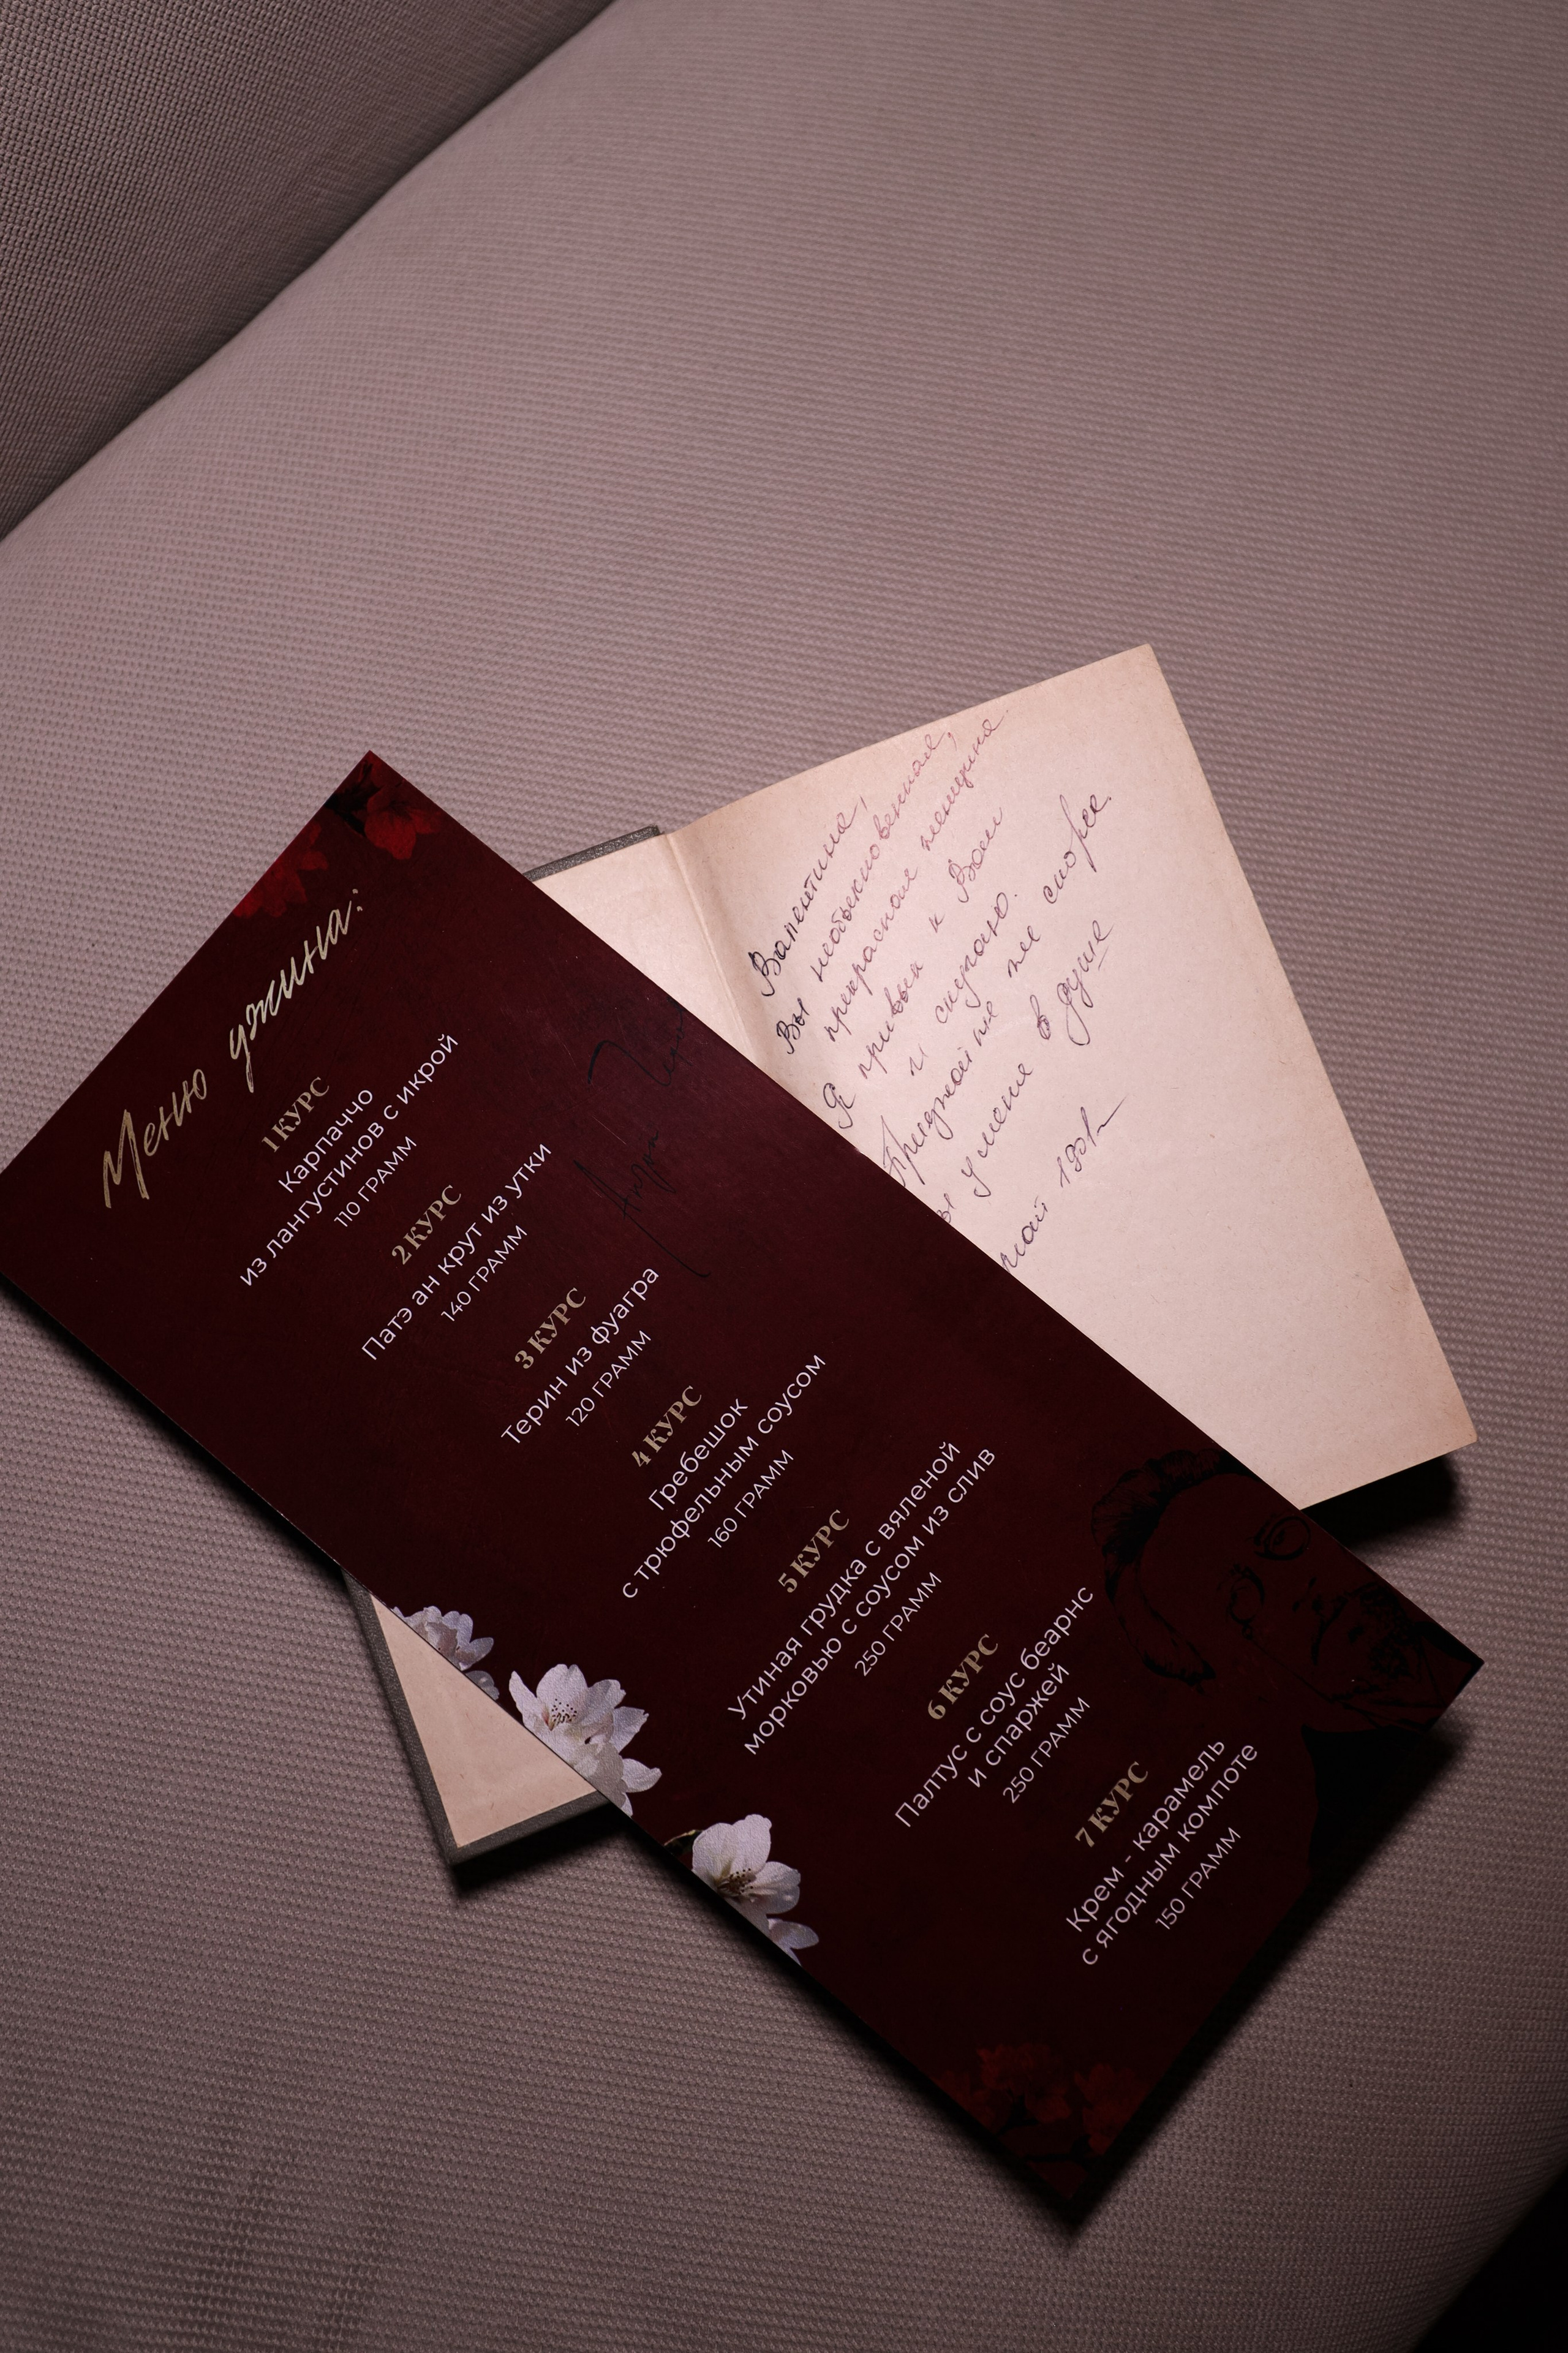 Меню ужина:
1 КУРС
Карпаччо
из лангустинов с икрой
110 ГРАММ
2 КУРС
Патэ ан крут из утки
140 ГРАММ
3 КУРС
Терин из фуагра
120 ГРАММ
4 КУРС
Гребешок
с трюфельным соусом
160 ГРАММ
5 КУРС
Утиная грудка с вяленой
морковью с соусом из слив
250 ГРАММ
6 КУРС
Палтус с соус беарнс
и спаржей
250 ГРАММ
7 КУРС
Крем - карамель
с ягодным компоте
150 ГРАММ
Валентина,
Вы необыкновенная,
прекрасная женщина.
Я привык к Вам
и скучаю.
Приезжайте же скорее.
Вы у меня в душе
май